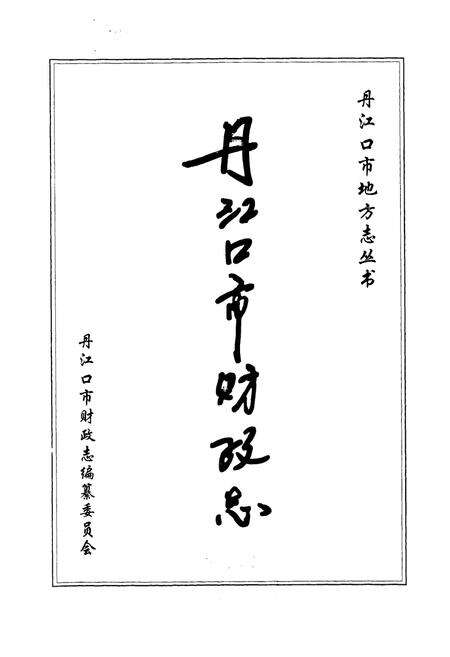 丹江口市地方志丛书
丹江口市财政志
丹江口市财政志编纂委员会